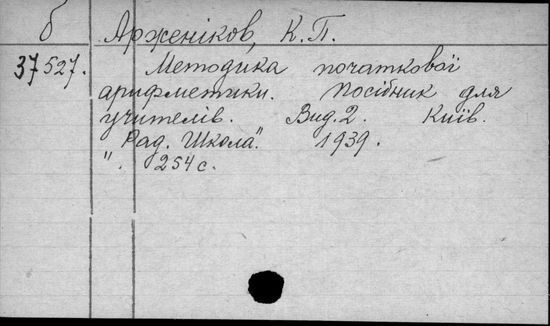 б Арженіков, К.П.
37527. Методика початкової
арифметики. Посібник для
учителів. Вид. 2. Київ.
"Рад. Школа". 1939.
". 254 с.